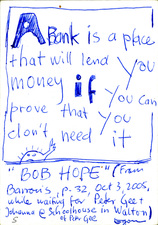 A Bank is a place
that will lend you
money if you can
prove that you
don't need it
"BOB HOPE" (From
Barron's, p. 32, Oct 3, 2005,
while waiting for Peter Gee +
Johanna @ Schoolhouse in Walton)
of Peter Gee